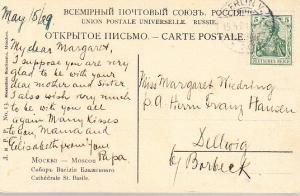 ВСЕМІРНЫЙ ПОЧТОВЫЙ СОЮЗЪ. РОССІЯ.
UNION POSTALE UNIVERSELLE. RUSSIE.
ОТКРЫТОЕ ПИСЬМО. — CARTE POSTALE.
May 15/09
My dear Margaret,
I suppose you are very
glad to be with your
dear mother and sister
I also wish very much
to be with you all
again. Many kisses
to you, Mama and
Elisabeth from your
Papa
Miss Margaret Wiedring
p A Herrn Franz Hansen
Dellwig
b/ Borbeck
5
5
DEUTSCHES REICH
МОСКВА — MOSCOU
Соборъ Василія Блаженнаго
Cathédrale St. Basile.